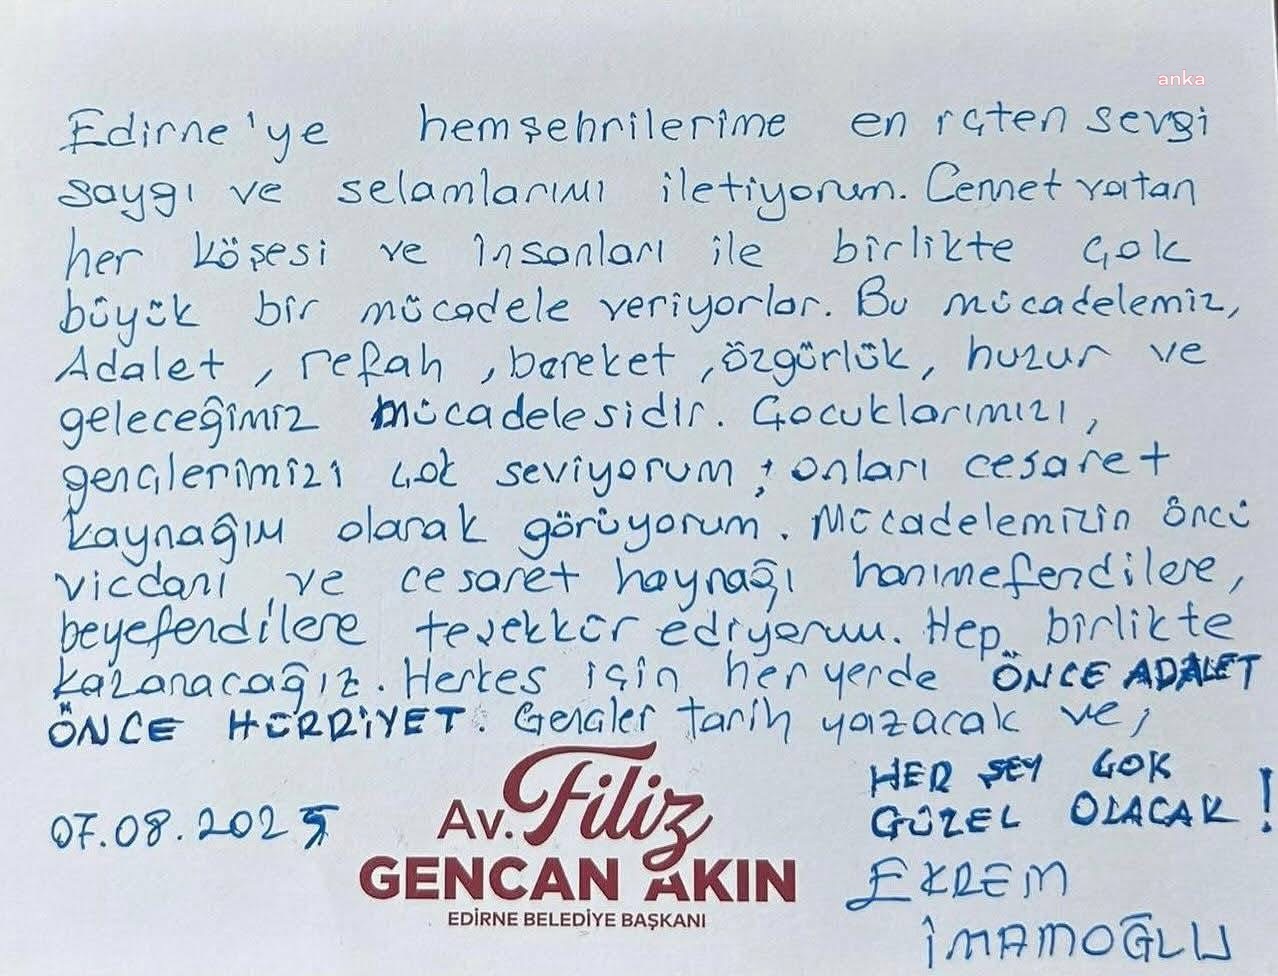 anka
Edirne'ye hemşehrilerime en içten sevgi
saygı ve selamlarımı iletiyorum. Cennet vatan
her köşesi ve insanları ile birlikte çok
büyük bir mücadele veriyorlar. Bu mücadelemiz,
Adalet, refah, bereket, özgürlük, huzur ve
geleceğimiz mücadelesidir. Çocuklarımızı,
gençlerimizi çok seviyorum; onları cesaret
kaynağım olarak görüyorum. Mücadelemizin öncü
vicdani ve cesaret kaynağı hanımefendilere,
beyefendilere teşekkür ediyorum. Hep birlikte
kazanacağız. Herkes için her yerde ÖNCE ADALET
ÖNCE HÜRRİYET. Gençler tarih yazacak ve;
HER ŞEY ÇOK
GÜZEL OLACAK!
07.08.2025
Av. Filiz
GENCAN AKIN
EDİRNE BELEDİYE BAŞKANI
EKREM
İMAMOĞLU